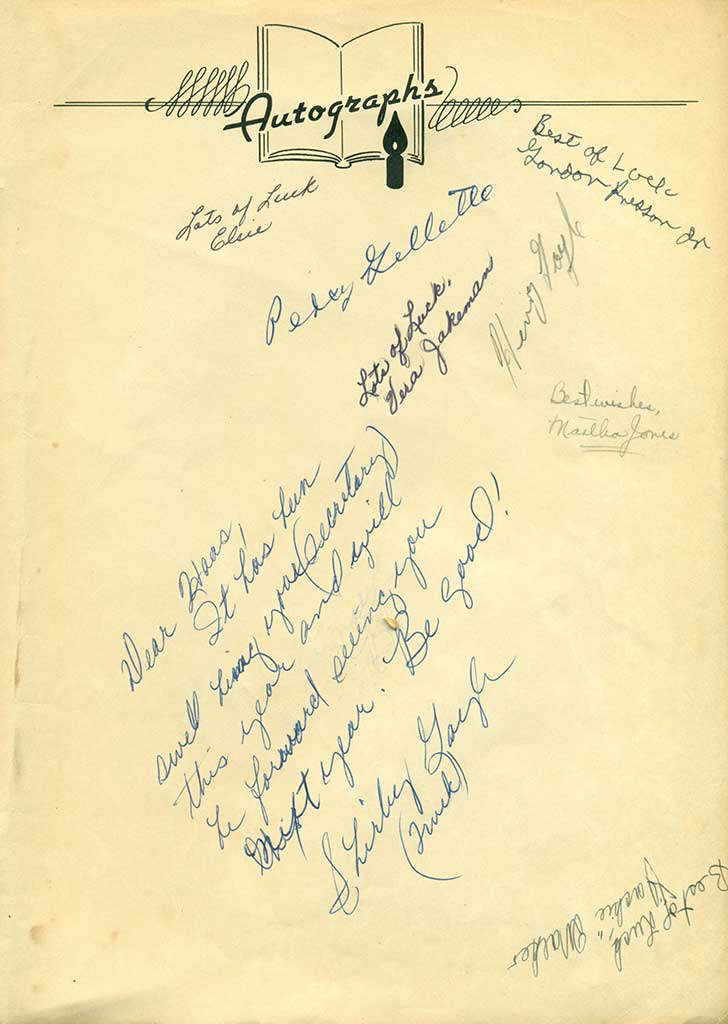 Autographs
Best of Luck
Gordon Presson Jr
Lots of Luck
Elsie
Percy Gellette
Lots of Luck,
Vera Jakeman
Best wishes,
Martha Jones
Dear Haas,
It has been
swell being your (secretary)
this year and will
be forward seeing you
next year. Be good!
Shirley
Best of Luck,
Walker